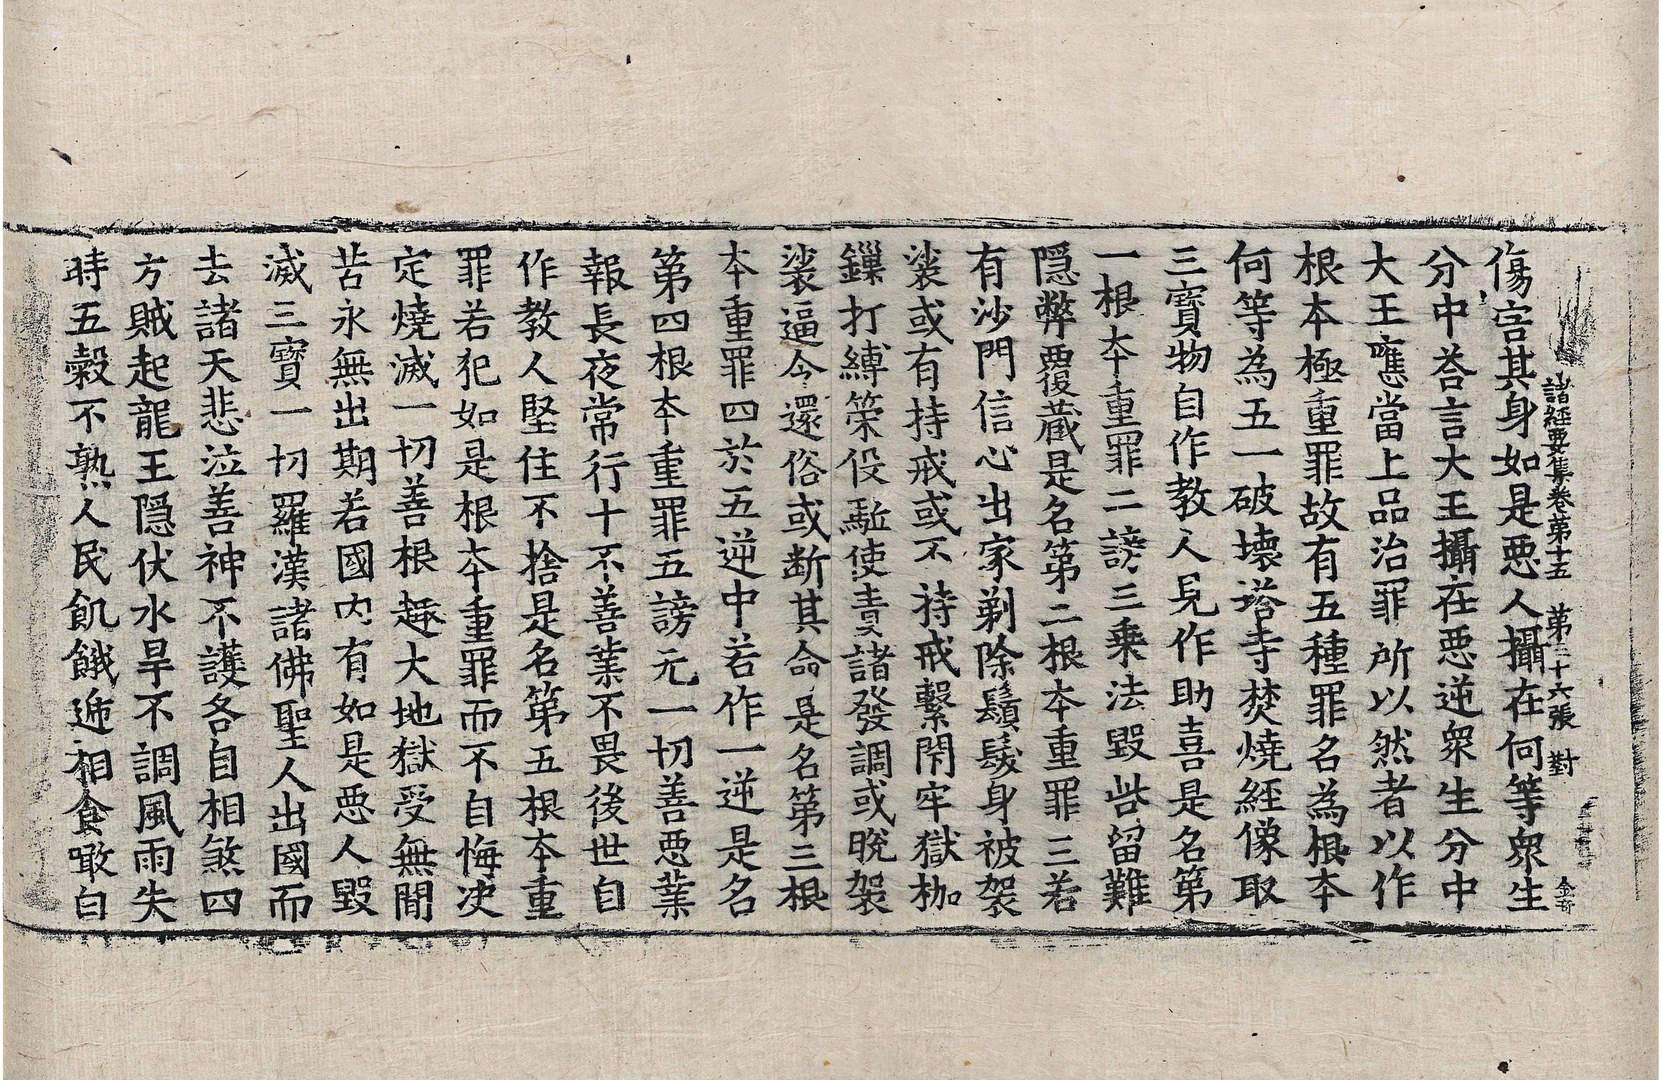 傷害其身如是惡人攝在何等衆生
諸經要集卷第十五 第三十六張 對
分中荅言大王攝在惡逆衆生分中
大王應當上品治罪所以然者以作
根本極重罪故有五種罪名為根本
何等為五一破壞塔寺焚燒經像取
三寶物自作教人見作助喜是名第
一根本重罪二謗三乘法毀呰留難
隱弊覆藏是名第二根本重罪三若
有沙門信心出家剃除鬚髮身被袈
裟或有持戒或不持戒繫閇牢獄枷
鏁打縛策役駈使責諸發調或脫袈
裟逼令還俗或断其命是名第三根
本重罪四於五逆中若作一逆是名
第四根本重罪五謗无一切善惡業
報長夜常行十不善業不畏後世自
作教人堅住不捨是名第五根本重
罪若犯如是根本重罪而不自悔决
定燒滅一切善根趣大地獄受無間
苦永無出期若國内有如是惡人毀
滅三寶一切羅漢諸佛聖人出國而
去諸天悲泣善神不護各自相煞四
方賊起龍王隱伏水旱不調風雨失
時五穀不熟人民飢餓逓相食噉白